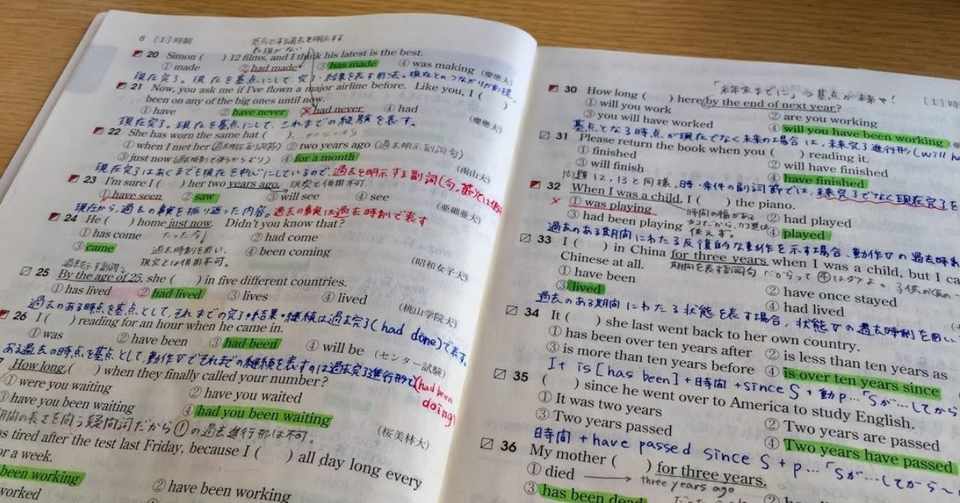 6 [1] 時制
20 Simon ( ) 12 films, and I think his latest is the best.
① made ② had made ③ has made ④ was making (慶應大)
現在完了。現在を基点にして
21 Now, you ask me if I've flown a major airline before. Like you, I ( )
been on any of the big ones until now.
① have ② have never ③ had never ④ had
(慶應大)
現在完了。現在を基点にして、これまでの経験を表す。
22 She has worn the same hat ( ).
① when I met her (過去明示副詞節) ② two years ago (過去明示副詞句)
③ just now ④ for a month
(南山大)
現在完了はあくまでも現在を中心にしているので、過去を明示する副詞(句、節)とは
23 I'm sure I ( ) her two years ago. 現在と併用不可。
① have seen ② saw ③ will see ④ see
(亜細亜大)
現在から、過去の事実を振り返った内容。過去の事実は過去時制で表す
24 He ( ) home just now. Didn't you know that?
① has come ② had come
③ came ④ been coming
(昭和女子大)
25 By the age of 25, she ( ) in five different countries.
① has lived ② had lived ③ lives ④ lived
(桃山学院大)
過去のある時点を基点として、それまでの完了・結果・継続は過去完了(had done)で表す。
26 I ( ) reading for an hour when he came in.
① was ② have been ③ had been ④ will be (センター試験)
ある過去の時点を基点として、動作Vでそれまでの継続を表すのは過去完了進行形で(had been doing)
How long ( ) when they finally called your number?
① were you waiting ② have you waited
have you been waiting ④ had you been waiting
(桜美林大)
期間の長さを問う疑問詞だから①の過去進行形は不可。
as tired after the test last Friday, because I ( ) all day long every
for a week.
been working ② have been working
working
30 How long ( ) here by the end of next year?
① will you work ② are you working
③ you will have worked ④ will you have been working
基点となる時点が現在でなく未来の場合は、未来完了進行形(will h
31 Please return the book when you ( ) reading it.
① finished ② will have finished
③ will finish ④ have finished
問題12,13と同様、時・条件の副詞節では、未来完了でなく現在完了を
32 When I was a child, I ( ) the piano.
① was playing ② had played
③ had been playing ④ played
過去のある期間にわたる反復的な動作を示す場合、動作Vの過去時
33 I ( ) in China for three years when I was a child, but I ca
Chinese at all.
① have been ② have once stayed
③ lived ④ had li
過去のある期間にわたる状態を表す場合、状態Vの過去時制を用い
34 It ( ) she last went back to her own country.
① has been over ten years after ② is less than ten years as
③ is more than ten years before ④ is over ten years since
It is [has been] + 時間 + since S + 動p… 「Sが…してから
35 ( ) since he went over to America to study English.
① It was two years ② Two years are passed
③ Two years passed ④ Two years have passed
時間 + have passed since S + p… 「Sが…してから~
36 My mother ( ) for three years.
① died → three years ago
③ has been dead